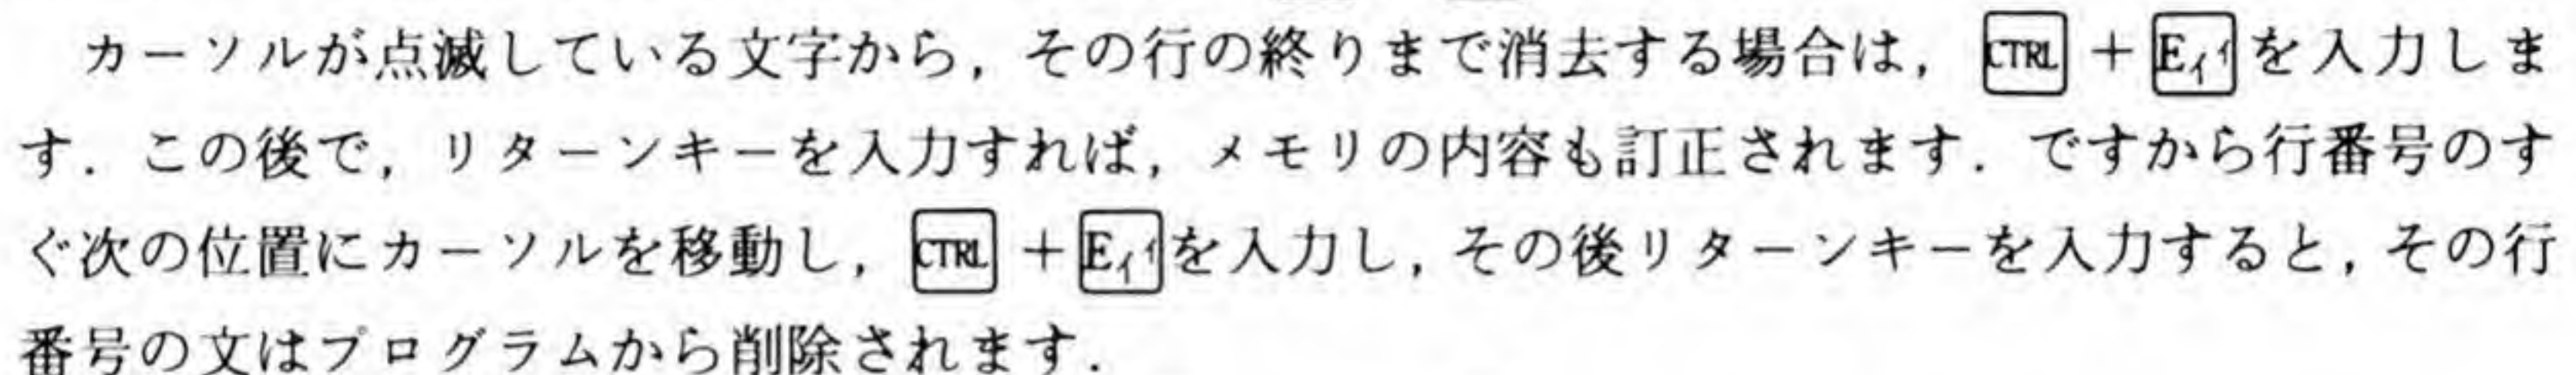 カーソルが点滅している文字から，その行の終りまで消去する場合は，CTRL＋Eィイを入力しま
す．この後で，リターンキーを入力すれば，メモリの内容も訂正されます．ですから行番号のす
ぐ次の位置にカーソルを移動し，CTRL＋Eィイを入力し，その後リターンキーを入力すると，その行
番号の文はプログラムから削除されます．